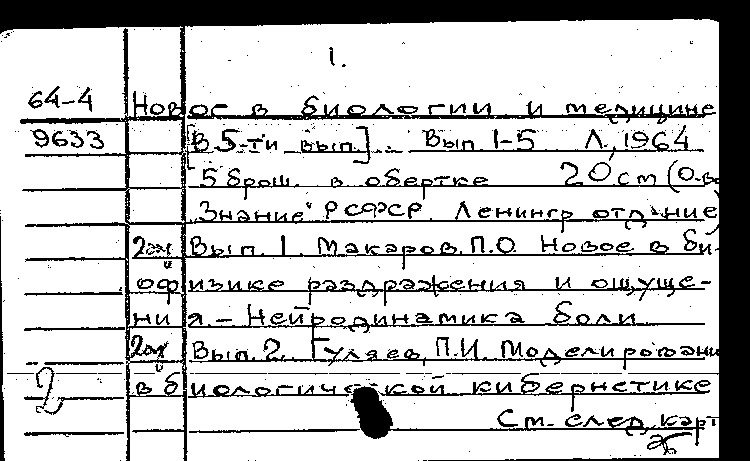 1.
64-4 Новое в биологии и медицине
9633 [В 5-ти вып.]. Вып. 1-5 Л., 1964
5 брош. в обертке 20 см (О-во
"Знание" РСФСР. Ленингр отд-ние)
2эк Вып. 1. Макаров, П.О. Новое в би-
офизике раздражения и ощуще-
ния. - Нейродинамика боли
2эк Вып. 2. Гуляев, П.И. Моделировани
в биологической кибернетике
2
См. след. карт